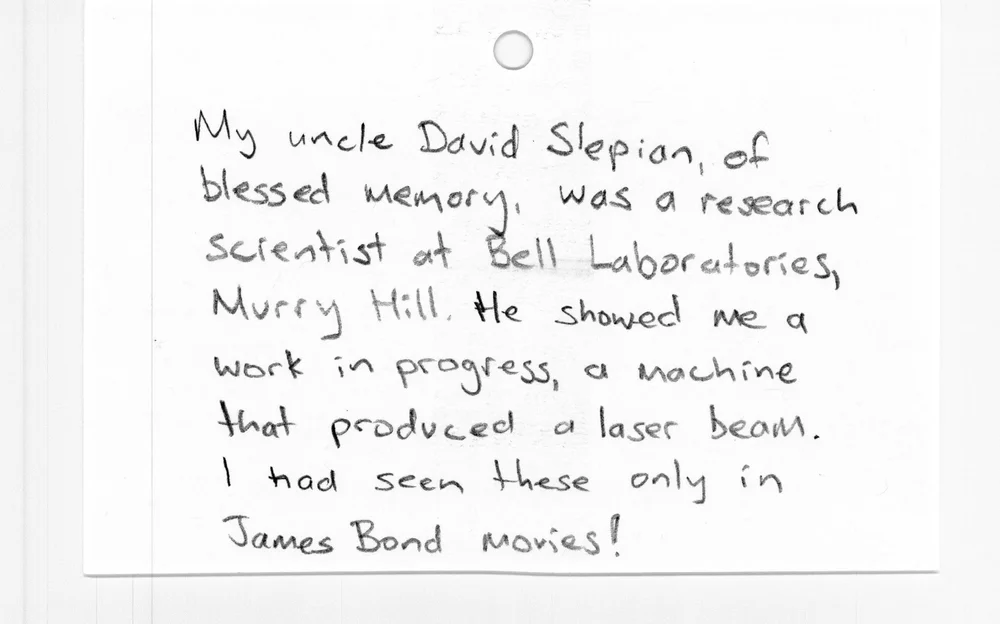 My uncle David Slepian, of
blessed memory, was a research
scientist at Bell Laboratories,
Murry Hill. He showed me a
work in progress, a machine
that produced a laser beam.
I had seen these only in
James Bond movies!